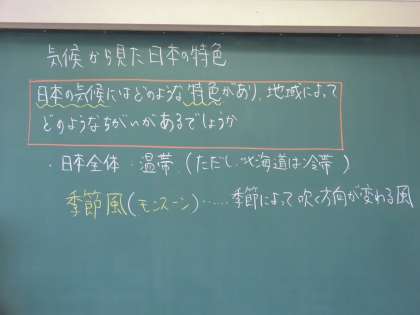 気候から見た日本の特色
日本の気候にはどのような特色があり、地域によって
どのようなちがいがあるでしょうか
・日本全体・温帯(ただし、北海道は冷帯)
季節風(モンスーン)……季節によって吹く方向が変わる風